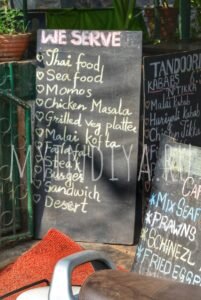 WE SERVE
Thai food
Sea food
Momos
Chicken Masala
Grilled veg platter
Malai kofta
Fallafal
Steak
Burger
Sandwich
Dessert
TANDOORI
KABABS
TIKKA
Malai Kabab
Hariyali Kabab
Chicken Tikka
CAF
MIX SEAF
PRAWNS
SCHINEZL
FRIED EGGE